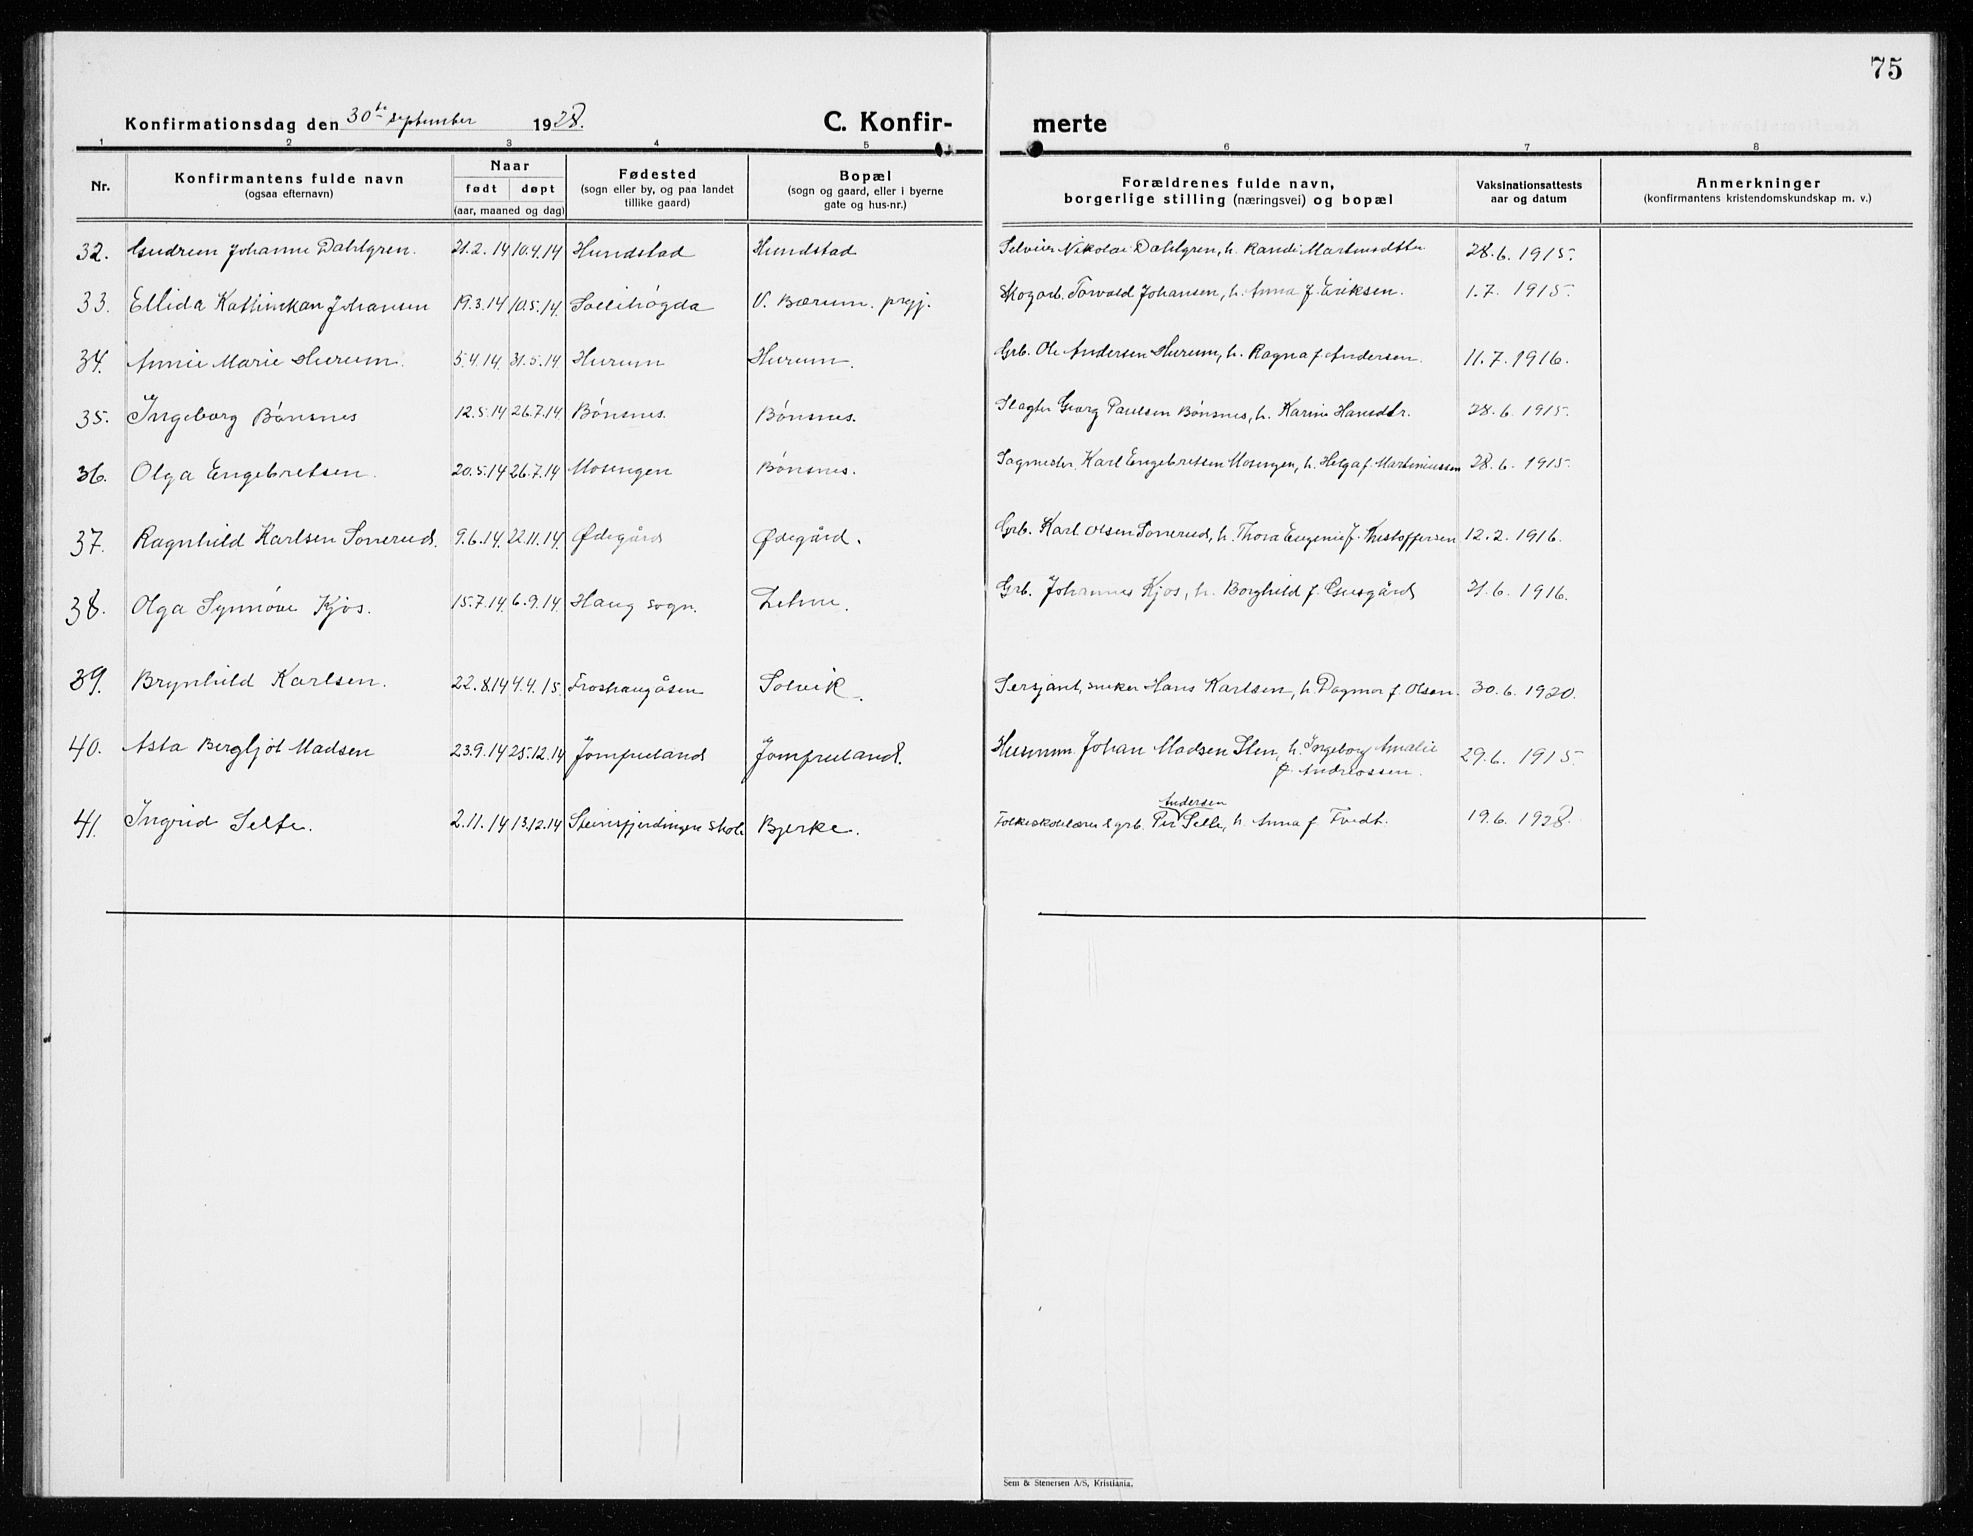 75
Konfirmationsdag den 30te september 1928. C. Konfir- merte
1 2 3 4 5 6 7 8
Nr. Konfirmantens fulde navn (ogsaa efternavn) Naar født døpt (aar, maaned og dag) Fødested (sogn eller by, og paa landet tillike gaard) Bopæl (sogn og gaard, eller i byerne gate og hus-nr.) Forældrenes fulde navn, borgerlige stilling (næringsvei) og bopæl Vaksinationsattests aar og datum Anmerkninger (konfirmantens kristendomskundskap m. v.)
32. Gudrun Johanne Dahlgren. 21.2.14 10.4.14 Hundstad Hundstad Selveier Nikolai Dahlgren, h. Randi Martinsdtter 28.6.1915.
33. Ellida Johansen 19.3.14 10.5.14. Sollihøgda V. Bærum prgj. Skogarb. Torvald Johansen, h. Anna f. Eriksen. 1.7.1915.
34. Annie Marie Hurum. 5.4.14. 31.5.14 Hurum Hurum. Grb. Ole Andersen Hurum, h. Ragna f. Andersen. 11.7.1916.
35. Ingeborg Bønsnes 12.5.14 26.7.14 Bønsnes. Bønsnes. Slagter Georg Paulsen Bønsnes, h. Karine Hansdtr. 28.6.1915.
36. Olga Engebretsen. 20.5.14 26.7.14 Mosengen Bønsnes. Sagmester Karl Engebretsen Mosengen, h. Helga f. Martiniussen 28.6.1915.
37. Ragnhild Karlsen Sonerud. 9.6.14. 22.11.14. Ødegård Ødegård. Grb. Karl Olsen Sonerud, h. Thora Eugenie f. Kristoffersen 12.2.1916.
38. Olga Synnøve Kjos. 15.7.14. 6.9.14. Haug sogn. Lehne. Grb. Johannes Kjos, h. Borghild f. Gusgård 21.6.1916.
39. Brynhild Karlsen. 22.8.14 4.4.15. Froshaugåsen Solvik. Sersjant, snekker Hans Karlsen, h. Dagmar f. Olsen. 30.6.1920.
40. Asta Bergljot Madsen 23.9.14 25.12.14 Jomfruland Jomfruland. Husmann Johan Madsen Sten, h. Ingeborg Amalie
f. Andreassen. 29.6.1915.
41. Ingrid Selte. 2.11.14 13.12.14 Steinsfjerdingen skole Bjerke. Folkeskolelærer & grb. Per Andersen Selte, h. Anna f. Tvedt. 19.6.1928.
Sem & Stenersen A/S, Kristiania.